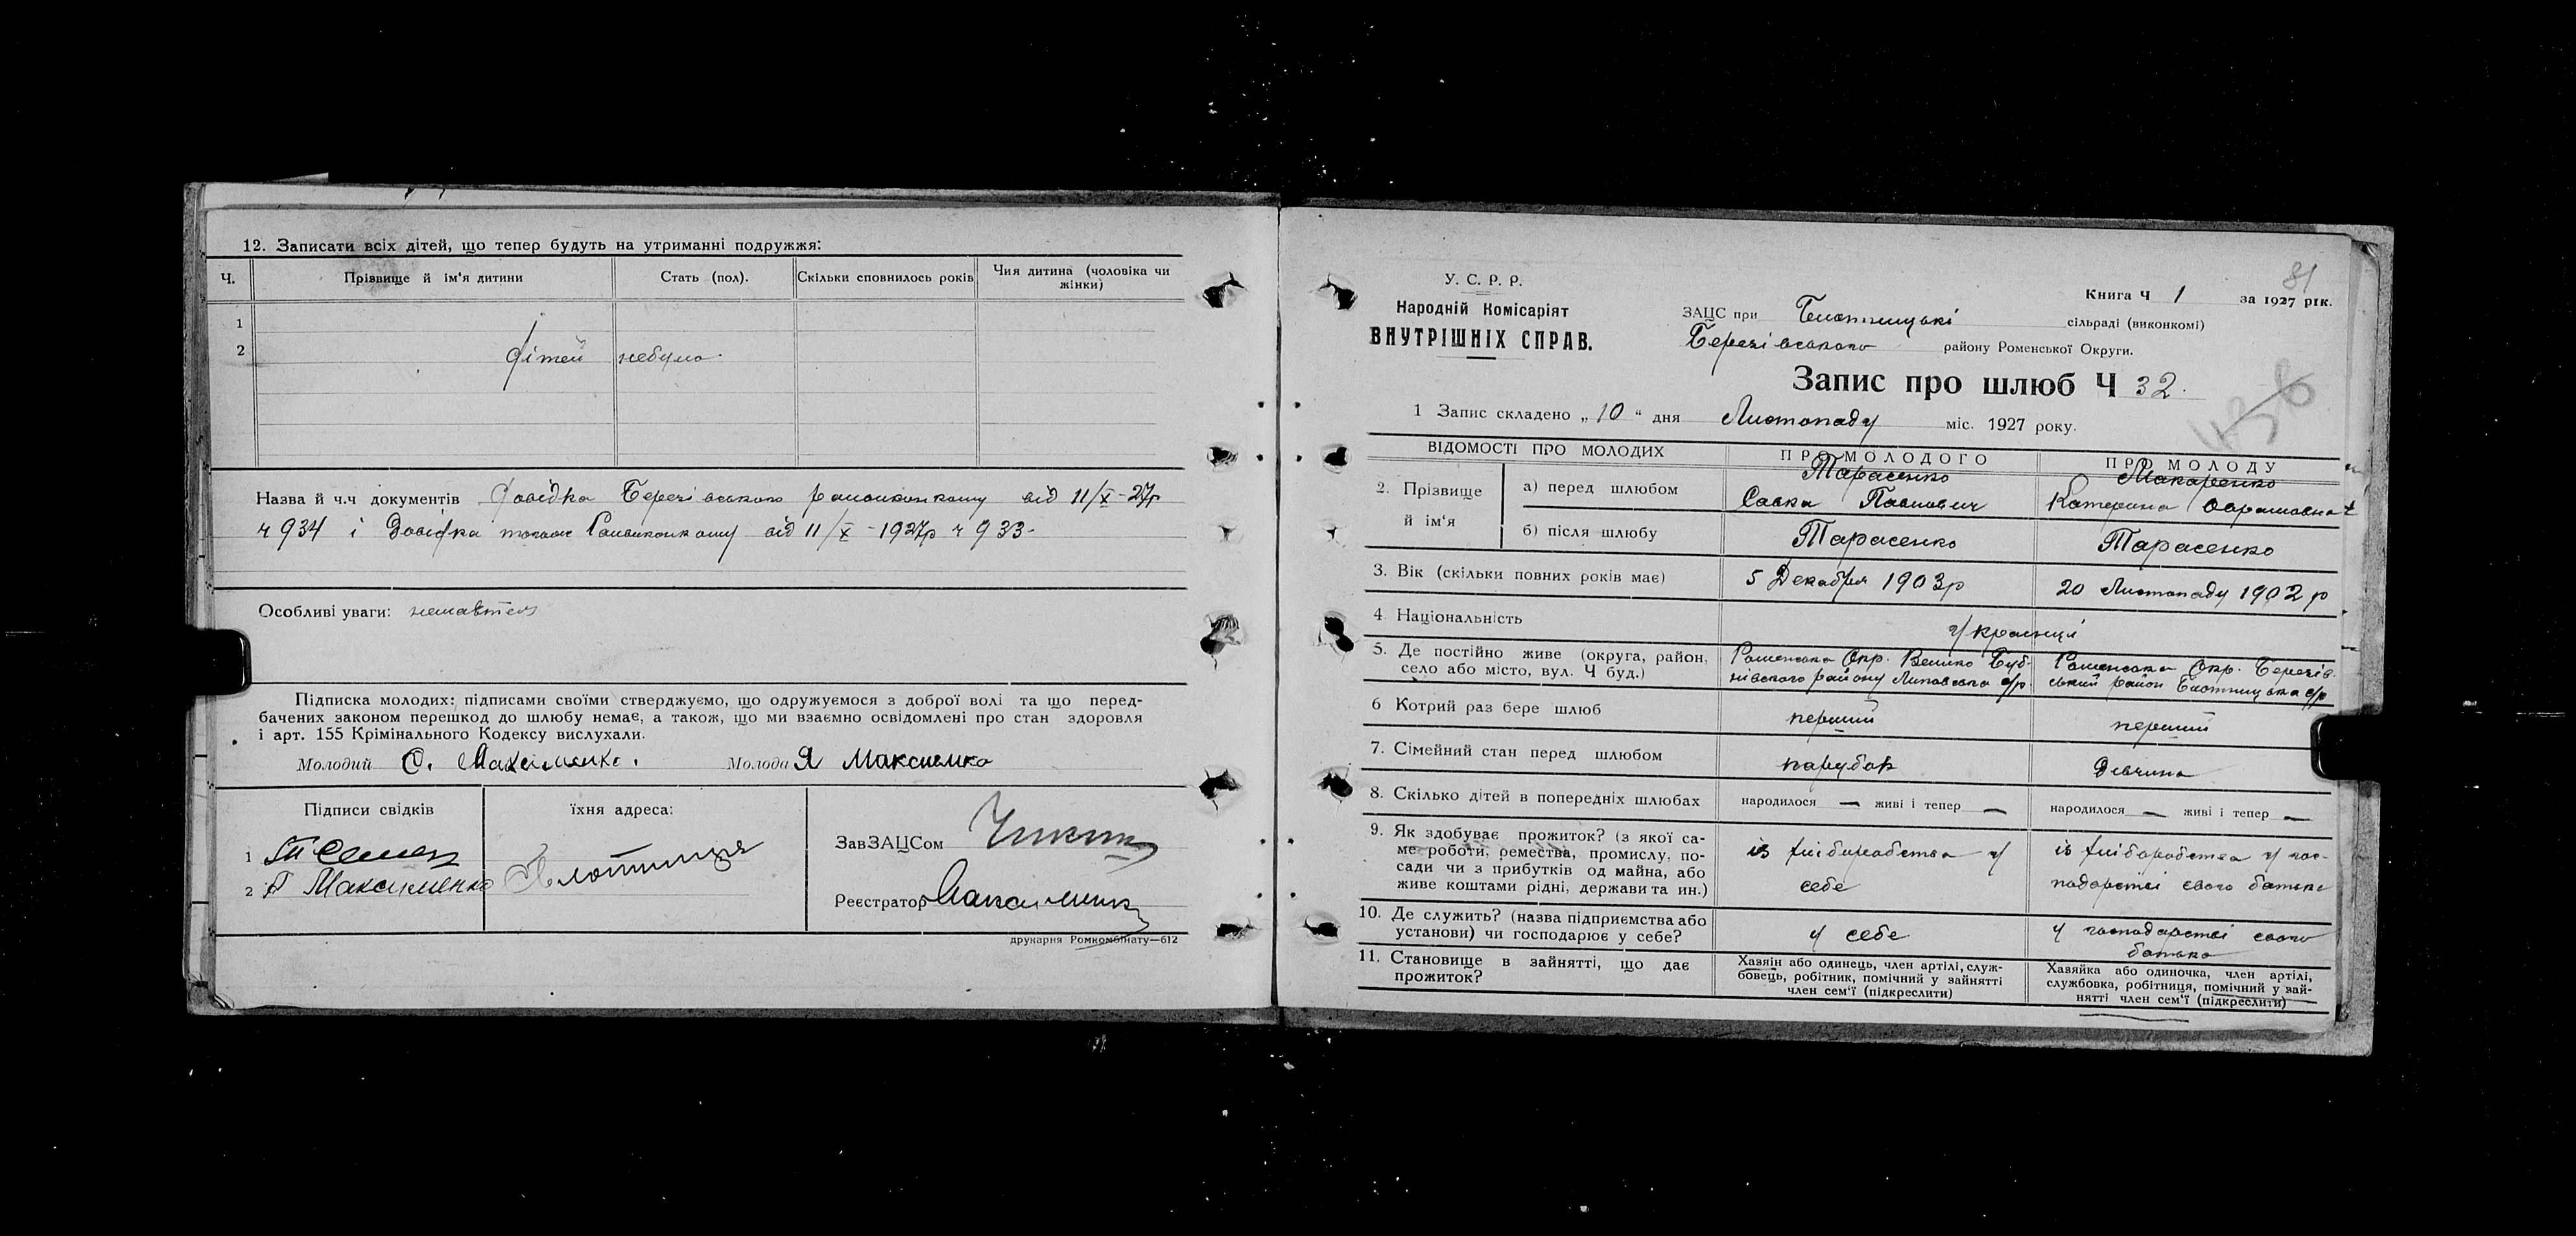 12. Записати всіх дітей, що тепер будуть на утриманні подружжя:
Ч. Прізвище й ім‘я дитини Стать (пол). Скільки сповнилось років Чия дитина (чоловіка чи жінки)
1
2 дітей небуло.
Назва й ч.ч документів Довідка Березівського райвиконкому від 11/X-27р
ч 934 і Довідка того ж Райвиконкому від 11/X-1927р ч 933-
Особливі уваги: немається
Підписка молодих: підписами своїми стверджуємо, що одружуємося з доброї волі та що перед-
бачених законом перешкод до шлюбу немає, а також, що ми взаємно освідомлені про стан здоровля
і арт. 155 Крімінального Кодексу вислухали.
Молодий С. Максименко. Молода Я Максиемко
Підписи свідків їхня адреса:
1
2 Г Максименко
ЗавЗАЦСом
Реєстратор
друкарня Ромкомбінату—612
81
У. С. Р. Р.
Народній Комісаріят
ВНУТРІШНІХ СПРАВ.
Книга Ч 1 за 1927 рік.
ЗАЦС при сільраді (виконкомі)
Березівського району Роменської Округи.
Запис про шлюб Ч 32.
1 Запис складено „10“ дня Листопаду міс. 1927 року.
ВІДОМОСТІ ПРО МОЛОДИХ ПРО МОЛОДОГО ПРО МОЛОДУ
2. Прізвище й ім‘я
а) перед шлюбом Тарасенко Савка Павлович Макаренко Катерина
б) після шлюбу Тарасенко Тарасенко
3. Вік (скільки повних років має) 5 Декабря 1903р 20 Листопаду 1902р
4 Національність Украінці
5. Де постійно живе (округа, район, село або місто, вул. Ч буд.)
Роменська Окр. Велико Буб-
нівського району Липовська с/р
Роменська Окр. Березів-
ський район
6 Котрий раз бере шлюб перший перший
7. Сімейний стан перед шлюбом парубок Дівчина
8. Скілько дітей в попередніх шлюбах народилося — живі і тепер — народилося — живі і тепер —
9. Як здобуває прожиток? (з якої са-
ме роботи, ремества, промислу, по-
сади чи з прибутків од майна, або
живе коштами рідні, держави та ин.)
із хліборобства у
себе
із хліборобства у гос-
подарстві свого батька
10. Де служить? (назва підприємства або
установи) чи господарює у себе?
у себе
у господарстві свого
батька
11. Становище в зайнятті, що дає
прожиток?
Хазяїн або одинець, член артілі, служ-
бовець, робітник, помічний у зайнятті
член сем‘ї (підкреслити)
Хавяйка або одиночка, член артілі,
службовка, робітниця, помічний у зай-
нятті член сем‘ї (підкреслити)